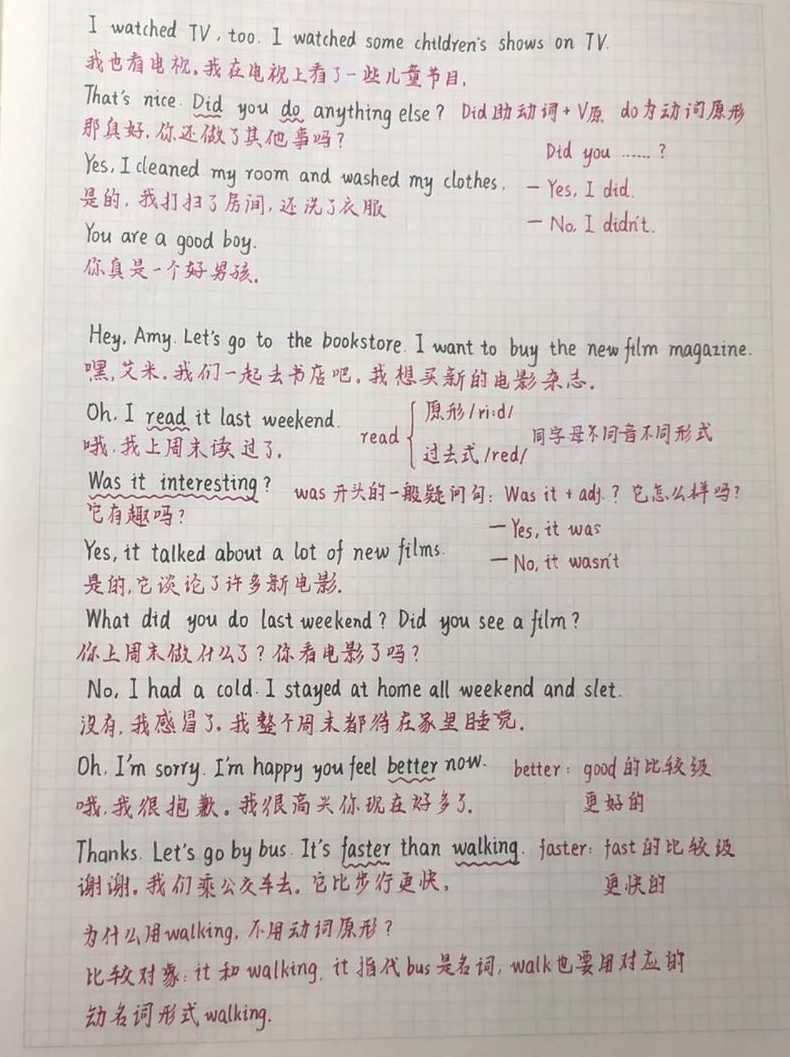 I watched TV, too. I watched some children's shows on TV.
我也看电视。我在电视上看了一些儿童节目。
That's nice. Did you do anything else? Did助动词+V原 do为动词原形
那真好,你还做了其他事吗?
Did you ……?
Yes, I cleaned my room and washed my clothes. — Yes, I did.
是的,我打扫了房间,还洗了衣服
— No, I didn't.
You are a good boy.
你真是一个好男孩。
Hey, Amy. Let's go to the bookstore. I want to buy the new film magazine.
嘿,艾米。我们一起去书店吧。我想买新的电影杂志。
Oh, I read it last weekend.
哦,我上周末读过了。
read { 原形/ri:d/
过去式/red/
同字母不同音不同形式
Was it interesting? was开头的一般疑问句: Was it + adj.? 它怎么样吗?
它有趣吗?
— Yes, it was
Yes, it talked about a lot of new films.
— No, it wasn't
是的,它谈论了许多新电影.
What did you do last weekend? Did you see a film?
你上周末做什么了?你看电影了吗?
No, I had a cold. I stayed at home all weekend and slet.
没有,我感冒了。我整个周末都待在家里睡觉。
Oh, I'm sorry. I'm happy you feel better now. better: good的比较级
哦,我很抱歉。我很高兴你现在好多了. 更好的
Thanks. Let's go by bus. It's faster than walking. faster: fast的比较级
谢谢。我们乘公交车去。它比步行更快。 更快的
为什么用walking, 不用动词原形?
比较对象: it和walking, it指代bus是名词, walk也要用对应的
动名词形式walking.